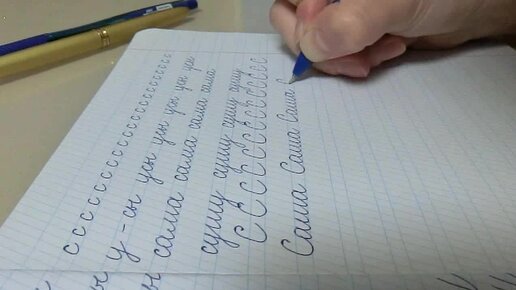 с с с с с с с с с с с с с с с с с с с с с с с с
ы у - сы усы усы усы усы усы
ы сама сама сама сама сама
сушу сушу сушу сушу
С С С С С С С С С С С С
Саша Саша Саша С